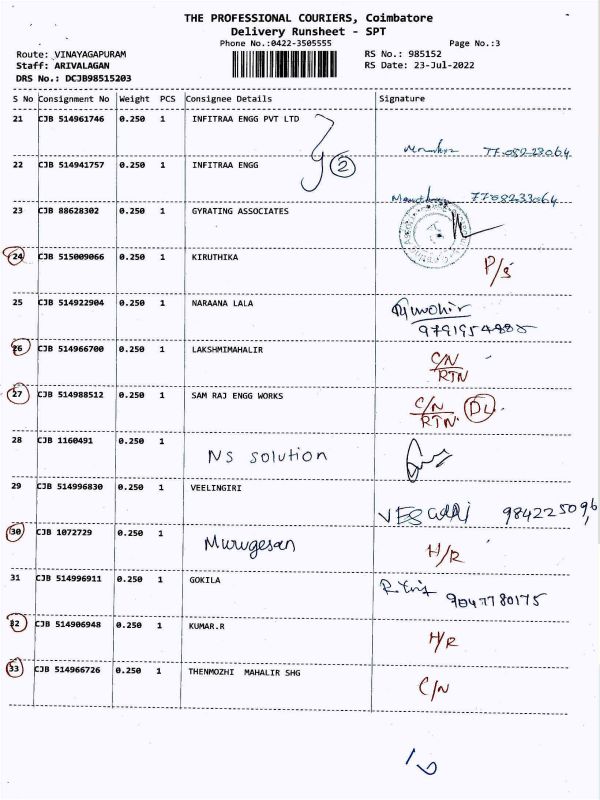 THE PROFESSIONAL COURIERS, Coimbatore
Delivery Runsheet - SPT
Phone No.:0422-3505555 Page No.:3
Route: VINAYAGAPURAM RS No.: 985152
Staff: ARIVALAGAN RS Date: 23-Jul-2022
DRS No.: DCJB98515203
S No Consignment No Weight PCS Consignee Details Signature
21 CJB 514961746 0.250 1 INFITRAA ENGG PVT LTD
2
22 CJB 514941757 0.250 1 INFITRAA ENGG
7708233064
23 CJB 88628302 0.250 1 GYRATING ASSOCIATES
24 CJB 515009066 0.250 1 KIRUTHIKA P/S
25 CJB 514922904 0.250 1 NARAANA LALA
26 CJB 514966700 0.250 1 LAKSHMIMAHALIR C/N
RTN
27 CJB 514988512 0.250 1 SAM RAJ ENGG WORKS C/N DL
RTN
28 CJB 1160491 0.250 1
NS solution
29 CJB 514996830 0.250 1 VEELINGIRI
VES 984225096
30 CJB 1072729 0.250 1
Murugesan H/R
31 CJB 514996911 0.250 1 GOKILA
9047780175
32 CJB 514906948 0.250 1 KUMAR.R H/R
33 CJB 514966726 0.250 1 THENMOZHI MAHALIR SHG C/N
10